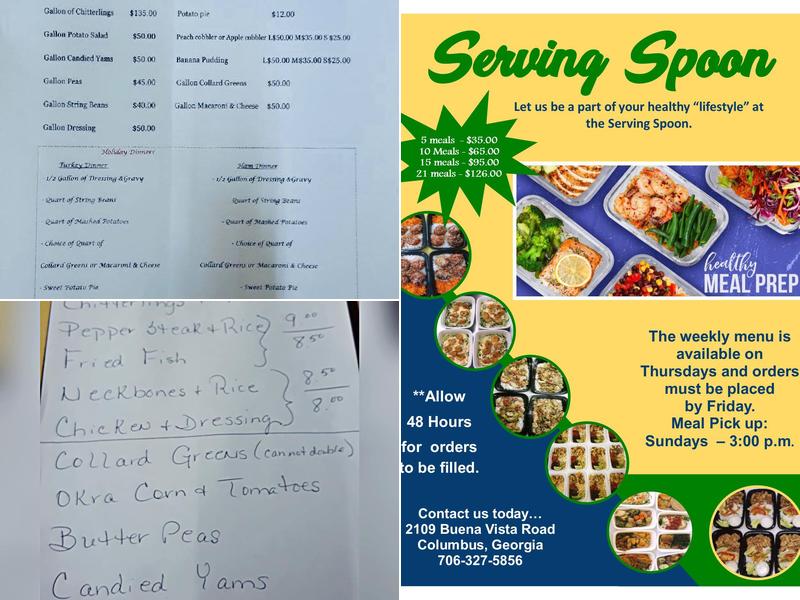 Gallon of Chitterlings $135.00 Potato pie $12.00
Gallon Potato Salad $50.00 Peach cobbler or Apple cobbler L$50.00 M$35.00 S $25.00
Gallon Candied Yams $50.00 Banana Pudding L$50.00 M$35.00 S$25.00
Gallon Peas $45.00 Gallon Collard Greens $50.00
Gallon String Beans $40.00 Gallon Macaroni & Cheese $50.00
Gallon Dressing $50.00
Holiday Dinners
Turkey Dinner Ham Dinner
- 1/2 Gallon of Dressing &Gravy - 1/2 Gallon of Dressing &Gravy
Quart of String Beans Quart of String Beans
- Quart of Mashed Potatoes - Quart of Mashed Potatoes
- Choice of Quart of - Choice of Quart of
Collard Greens or Macaroni & Cheese Collard Greens or Macaroni & Cheese
- Sweet Potato Pie - Sweet Potato Pie
Chitterlings
Pepper Steak + Rice 9.00
8.50
Fried Fish
Neckbones + Rice 8.50
8.00
Chicken + Dressing
Collard Greens (cannot double)
Okra Corn & Tomatoes
Butter Peas
Candied Yams
Serving Spoon
Let us be a part of your healthy “lifestyle” at
the Serving Spoon.
5 meals - $35.00
10 Meals - $65.00
15 meals - $95.00
21 meals - $126.00
healthy
MEAL PREP
The weekly menu is
available on
Thursdays and orders
must be placed
by Friday.
Meal Pick up:
Sundays – 3:00 p.m.
**Allow
48 Hours
for orders
to be filled.
Contact us today…
2109 Buena Vista Road
Columbus, Georgia
706-327-5856